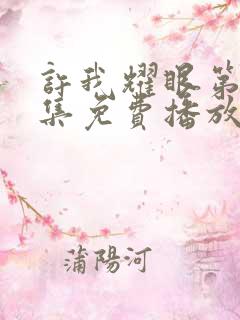 許我耀眼第
集免費播放
蒲陽河